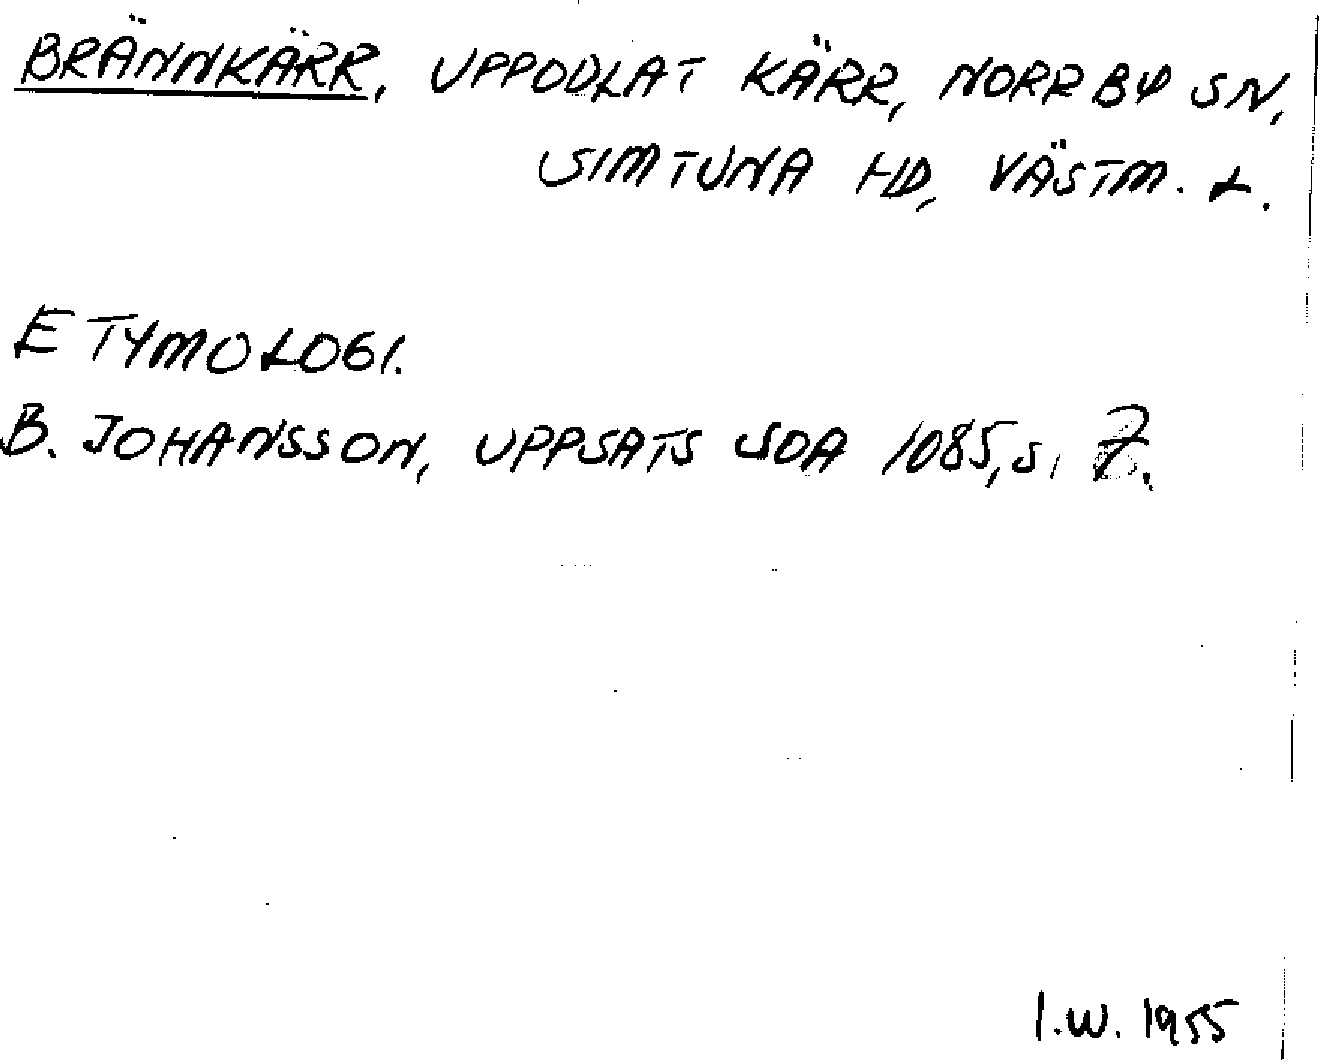 BRÄNNKÄRR, UPPODLAT KÄRR, NORRBY SN,
SIMTUNA HD, VÄSTM. L.
ETYMOLOGI.
B. JOHANSSON, UPPSATS SOA 1085, S. 7.
I.W. 1955